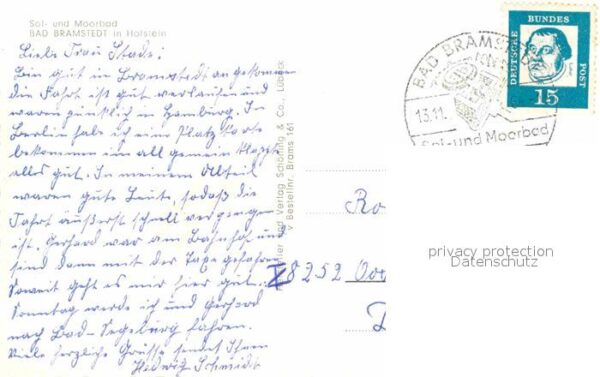 Sol- und Moorbad
BAD BRAMSTEDT in Holstein
Liebe Frau Stade!
Bin gut in Bramstedt angekommen
die Fahrt ist gut verlaufen und
waren pünklich in Hamburg. In
Berlin habe ich eine Platzkarte
bekommen im all gemein klappte
alles gut. In meinem Abteil
waren gute Leute, sodaß die
Fahrt äußerst schnell vergangen
ist. Gerhard war am Bahnhof und
sind dann mit der Taxe gefahren
Soweit geht es mir hier gut.
Sonntag werde ich und Gerhard
nach Bad-Segeburg fahren.
Viele herzliche Grüsse sendet Ihnen
Hedwig Schmidt
und Verlag Schöning & Co., LÜBECK
Bestellnr. Brams 161
BAD BRAMSTEDT
13.11.
Sol-und Moorbad
DEUTSCHE
BUNDES
POST
15
8252
privacy protection
Datenschutz